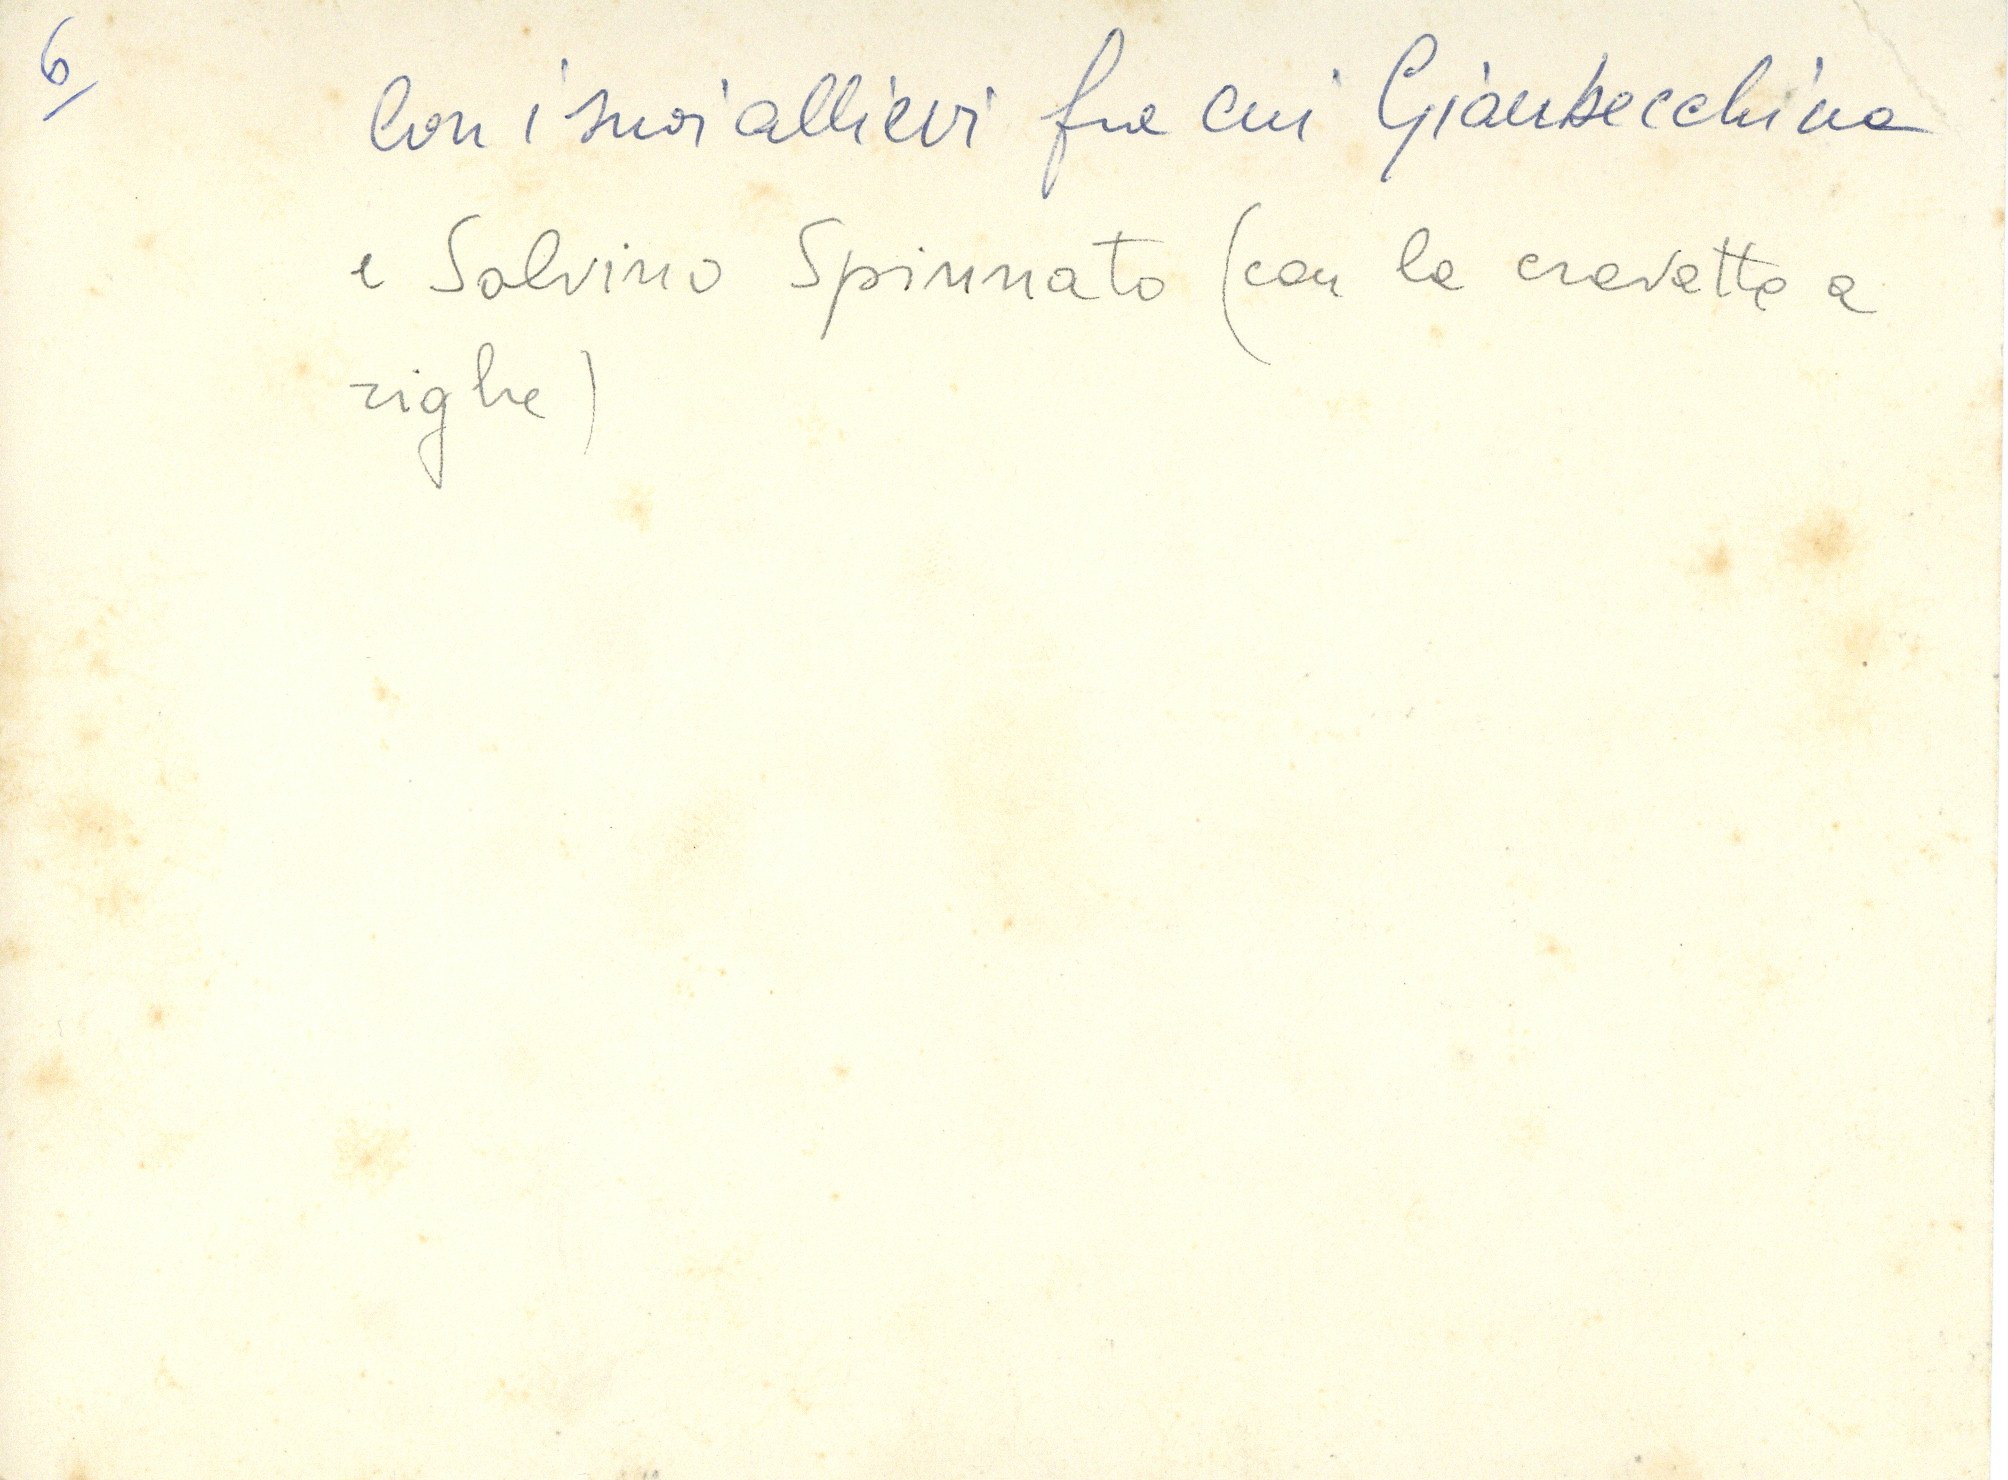 6/
Con i suoi allievi fra cui Gianbecchina
e Salvino Spinnato (con la cravatta a
righe)